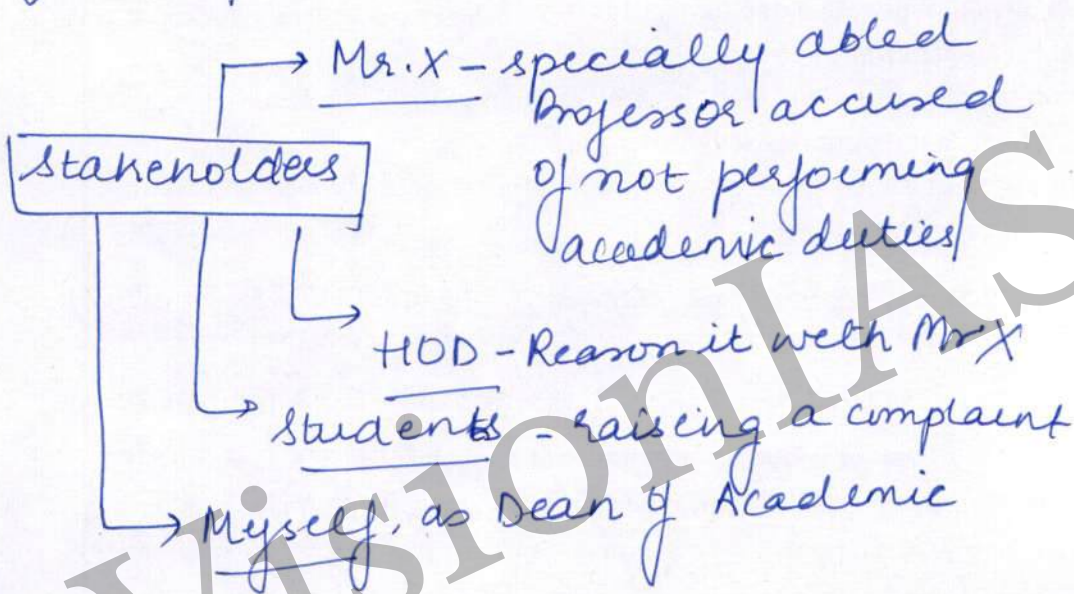 Mr. X - specially abled
Professor accused
of not performing
academic duties
Stakeholders
HOD - Reason it with Mr X
Students - raising a complaint
Myself, as Dean of Academic
VisionIAS